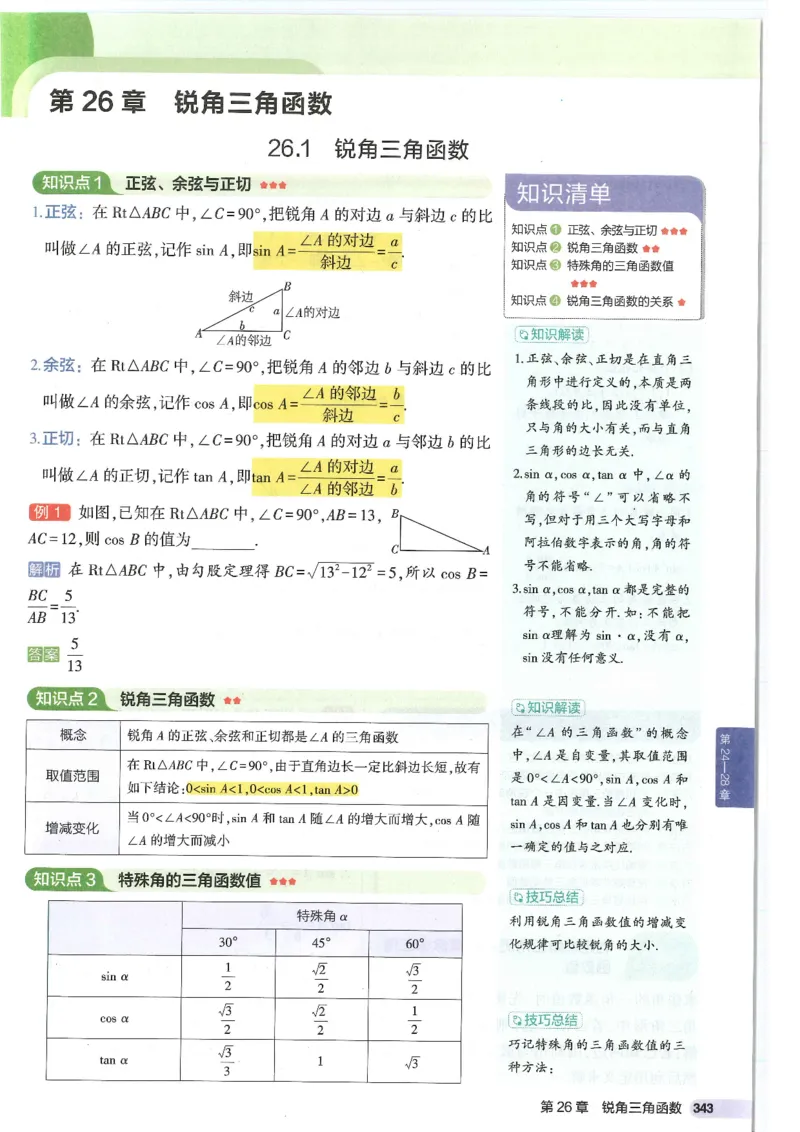 第 26 章 锐角三角函数
26.1 锐角三角函数
知识点 1 正弦、余弦与正切 ★★★
1.正弦：在 Rt△ABC 中,∠C=90°,把锐角 A 的对边 a 与斜边 c 的比
叫做∠A 的正弦,记作 sin A,即sin A=∠A 的对边/斜边=a/c.
斜边
B
c
a
∠A的对边
b
A
C
∠A的邻边
2.余弦：在 Rt△ABC 中,∠C=90°,把锐角 A 的邻边 b 与斜边 c 的比
叫做∠A 的余弦,记作 cos A,即cos A=∠A 的邻边/斜边=b/c.
3.正切：在 Rt△ABC 中,∠C=90°,把锐角 A 的对边 a 与邻边 b 的比
叫做∠A 的正切,记作 tan A,即tan A=∠A 的对边/∠A 的邻边=a/b.
例 1 如图,已知在 Rt△ABC 中,∠C=90°,AB=13,
AC=12,则 cos B 的值为________.
B
C
A
解析 在 Rt△ABC 中,由勾股定理得 BC=√(13²-12²)=5,所以 cos B=
BC/AB=5/13.
答案 5/13
知识点 2 锐角三角函数 ★★
概念 锐角 A 的正弦、余弦和正切都是∠A 的三角函数
取值范围 在 Rt△ABC 中,∠C=90°,由于直角边长一定比斜边长短,故有
如下结论:0<sin A<1,0<cos A<1,tan A>0
增减变化 当 0°<∠A<90°时,sin A 和 tan A 随∠A 的增大而增大,cos A 随
∠A 的增大而减小
知识点 3 特殊角的三角函数值 ★★★
特殊角 α
30° 45° 60°
sin α 1/2 √2/2 √3/2
cos α √3/2 √2/2 1/2
tan α √3/3 1 √3
知识清单
知识点 ① 正弦、余弦与正切 ★★★
知识点 ② 锐角三角函数 ★★
知识点 ③ 特殊角的三角函数值
★★★
知识点 ④ 锐角三角函数的关系 ★
知识解读
1.正弦、余弦、正切是在直角三
角形中进行定义的,本质是两
条线段的比,因此没有单位,
只与角的大小有关,而与直角
三角形的边长无关.
2.sin α,cos α,tan α 中,∠α 的
角的符号“∠”可以省略不
写,但对于用三个大写字母和
阿拉伯数字表示的角,角的符
号不能省略.
3.sin α,cos α,tan α 都是完整的
符号,不能分开.如:不能把
sin α理解为 sin·α,没有 α,
sin 没有任何意义.
知识解读
在“∠A 的三角函数”的概念
中,∠A 是自变量,其取值范围
是 0°<∠A<90°,sin A,cos A 和
tan A 是因变量.当∠A 变化时,
sin A,cos A 和 tan A 也分别有唯
一确定的值与之对应.
技巧总结
利用锐角三角函数值的增减变
化规律可比较锐角的大小.
技巧总结
巧记特殊角的三角函数值的三
种方法：
第24—28章
第 26 章 锐角三角函数 343